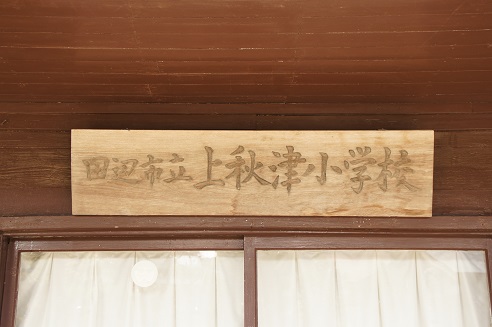 田辺市立上秋津小学校